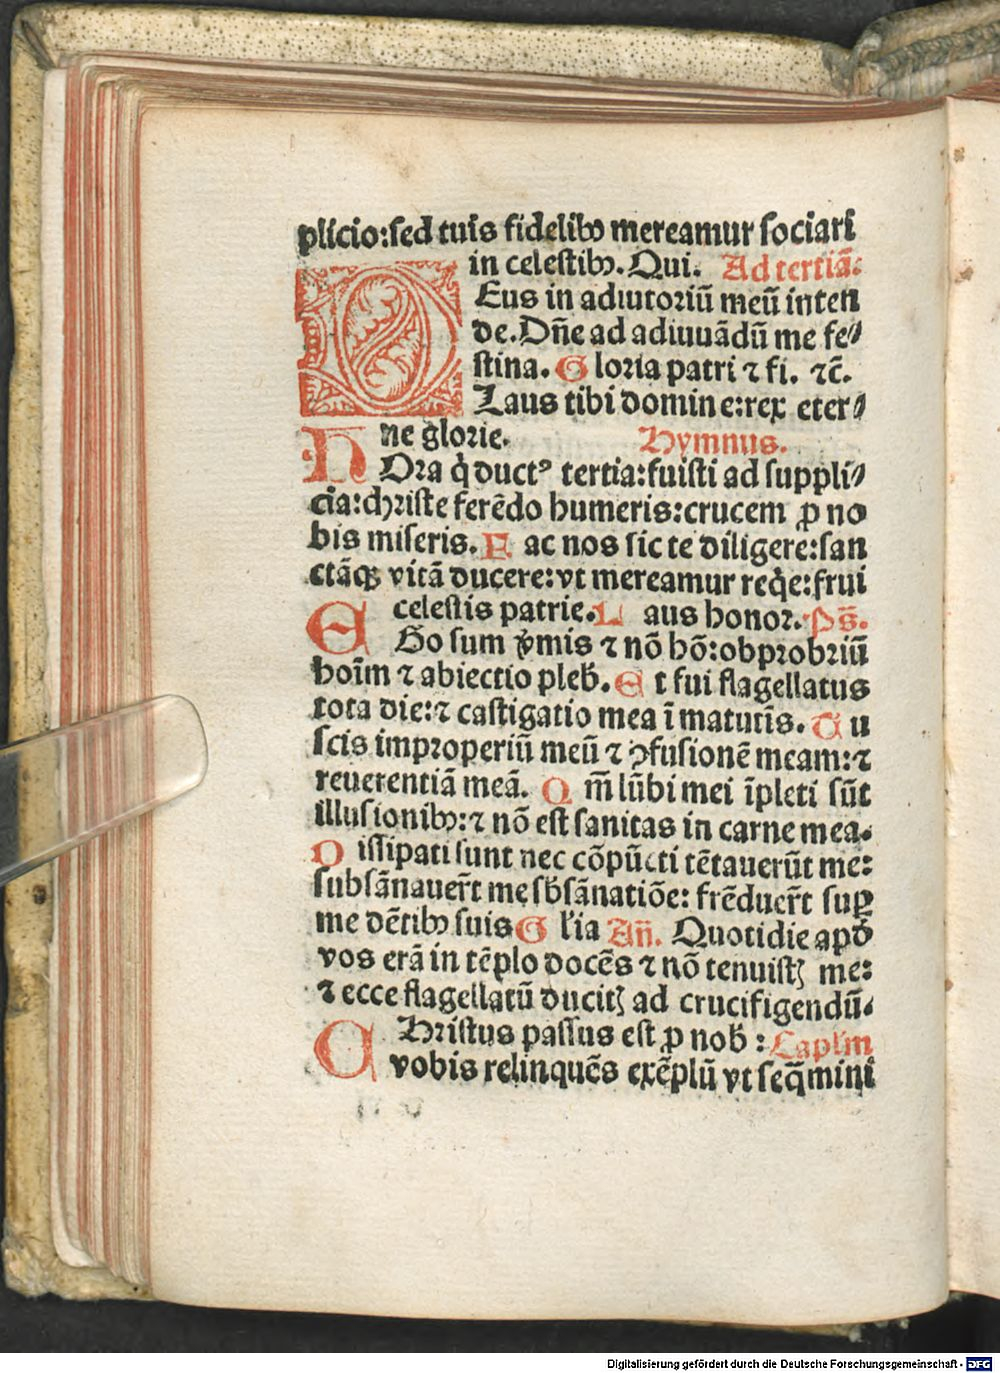 plicio:sed tuis fidelibꝰ mereamur sociari
in celestibꝰ. Qui. Ad tertiā:
DEus in adiutoriū meū inten
de. Dñe ad adiuuādū me fe⸗
stina. Gloria patri ⁊ fi. ⁊c̄.
Laus tibi domine:rex eter⸗
ne glorie. Hymnus.
HOra q̇ ductꝰ tertia:fuisti ad suppli⸗
cia:christe ferēdo humeris:crucem ꝓ no
bis miseris. Fac nos sic te diligere:san
ctāqꝫ vitā ducere:vt mereamur reqͥe:frui
celestis patrie. Laus honor. Ps̄.
EGo sum v̄mis ⁊ nō hō:obprobriū
hoīm ⁊ abiectio pleb̄. Et fui flagellatus
tota die:⁊ castigatio mea ī matutīs. Tu
scis improperiū meū ⁊ ꝯfusionē meam:⁊
reuerentiā meā. Qm̄ lūbi mei īpleti sūt
illusionibꝰ:⁊ nō est sanitas in carne mea.
Dissipati sunt nec cōpūcti tētauerūt me:
subsānauer̄t me sb̄sānatiōe: frēduer̄t suꝑ
me dētibꝰ suis Gl'ia Añ. Quotidie apđ
vos erā in tēplo docēs ⁊ nō tenuistꝭ me:
⁊ ecce flagellatū ducitꝭ ad crucifigendū.
CHristus passus est ꝓ nob̄ : Capl'm
vobis relinquēs exēplū vt seq̄mini
Digitalisierung gefördert durch die Deutsche Forschungsgemeinschaft - DFG